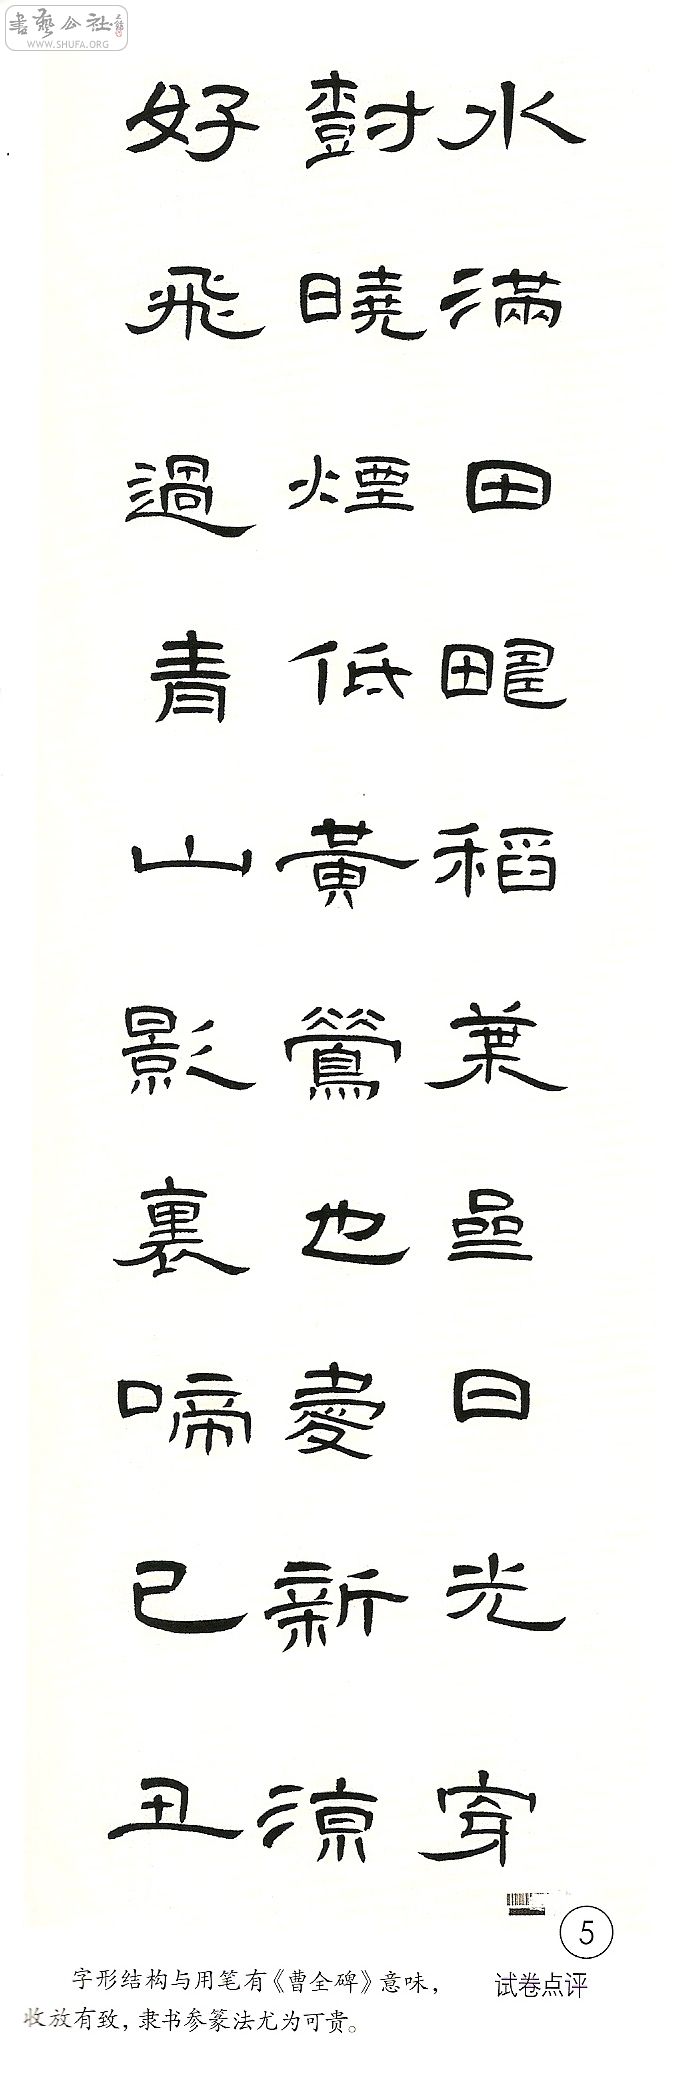 書藝公社
WWW.SHUFA.ORG
水滿田疇稻葉齊日光穿
樹曉煙低黃鶯也愛新涼
好飛過青山影裏啼己丑
5
试卷点评
字形结构与用笔有《曹全碑》意味，
收放有致，隶书参篆法尤为可贵。